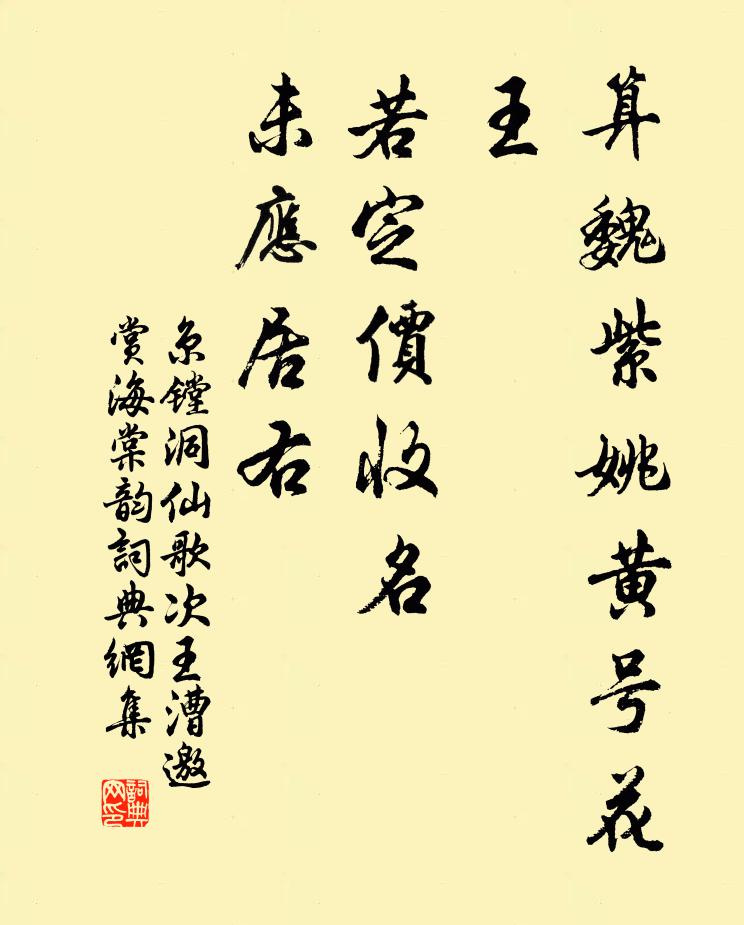 算魏紫姚黄号花
王
若定價收名
未應居右
京鏜洞仙歌次王漕邀
賞海棠韵詞典網集
詞典
网印